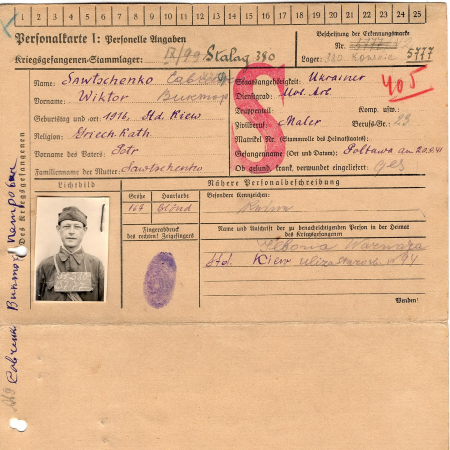 1 2 3 4 5 6 7 8 9 10 11 12 13 14 15 16 17 18 19 20 21 22 23 24 25
Personalkarte I: Personelle Angaben
Kriegsgefangenen-Stammlager: Stalag 380
Beschriftung der Erkennungsmarke
Nr. 5777
Lager: 5777
Name: Sawtschenko
Vorname: Wiktor Виктор
Geburtstag und -ort: 1916, Kiew
Religion: Griech. Kath.
Vorname des Vaters: Petr
Familienname der Mutter: Sawtschenko
Staatsangehörigkeit: Ukrainer
Dienstgrad:
Truppenteil:
Zivilberuf: Maler Berufs-Gr.: 23
Komp. usw.:
Matrikel Nr. (Stammrolle des Heimatstaates):
Gefangennahme (Ort und Datum): Poltawa am 20.9.41
Ob gesund, krank, verwundet eingeliefert: ges
405
Des Kriegsgefangenen
Lichtbild
Nähere Personalbeschreibung
Größe
Haarfarbe
Besondere Kennzeichen:
167
Blond
Fingerabdruck
des rechten! Zeigefingers
Name und Anschrift der zu benachrichtigenden Person in der Heimat
des Kriegsgefangenen
Kiew
Wenden!